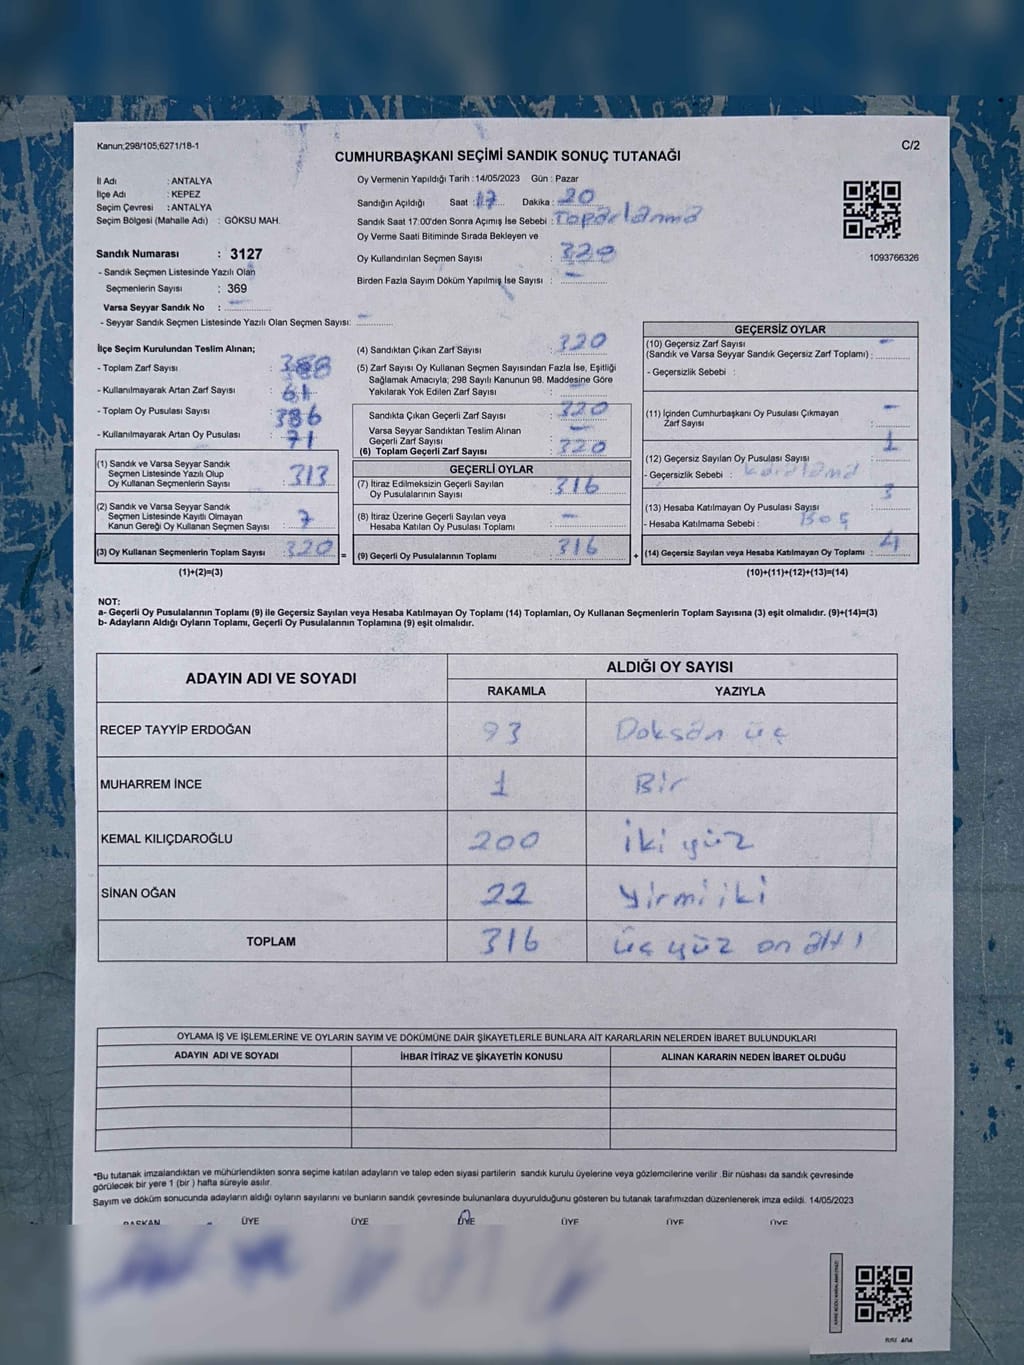 Kanun;298/105;6271/18-1
C/2
CUMHURBAŞKANI SEÇİMİ SANDIK SONUÇ TUTANAĞI
İl Adı : ANTALYA
İlçe Adı : KEPEZ
Seçim Çevresi : ANTALYA
Seçim Bölgesi (Mahalle Adı) : GÖKSU MAH.
Sandık Numarası : 3127
- Sandık Seçmen Listesinde Yazılı Olan
Seçmenlerin Sayısı : 369
Varsa Seyyar Sandık No : -
- Seyyar Sandık Seçmen Listesinde Yazılı Olan Seçmen Sayısı: -
Oy Vermenin Yapıldığı Tarih : 14/05/2023 Gün : Pazar
Sandığın Açıldığı Saat : 17 Dakika : 20
Sandık Saat 17:00'den Sonra Açımış İse Sebebi : Toparlanma
Oy Verme Saati Bitiminde Sırada Bekleyen ve
Oy Kullandırılan Seçmen Sayısı : 320
Birden Fazla Sayım Döküm Yapılmış İse Sayısı : -
1093766326
İlçe Seçim Kurulundan Teslim Alınan;
- Toplam Zarf Sayısı : 388
- Kullanılmayarak Artan Zarf Sayısı : 61
- Toplam Oy Pusulası Sayısı : 386
- Kullanılmayarak Artan Oy Pusulası : 71
(1) Sandık ve Varsa Seyyar Sandık
Seçmen Listesinde Yazılı Olup
Oy Kullanan Seçmenlerin Sayısı : 313
(2) Sandık ve Varsa Seyyar Sandık
Seçmen Listesinde Kayıtlı Olmayan
Kanun Gereği Oy Kullanan Seçmen Sayısı : 7
(3) Oy Kullanan Seçmenlerin Toplam Sayısı : 320 =
(1)+(2)=(3)
(4) Sandıktan Çıkan Zarf Sayısı : 320
(5) Zarf Sayısı Oy Kullanan Seçmen Sayısından Fazla İse, Eşitliği
Sağlamak Amacıyla; 298 Sayılı Kanunun 98. Maddesine Göre
Yakılarak Yok Edilen Zarf Sayısı : -
Sandıkta Çıkan Geçerli Zarf Sayısı : 320
Varsa Seyyar Sandıktan Teslim Alınan
Geçerli Zarf Sayısı : -
(6) Toplam Geçerli Zarf Sayısı : 320
GEÇERLİ OYLAR
(7) İtiraz Edilmeksizin Geçerli Sayılan
Oy Pusulalarının Sayısı : 316
(8) İtiraz Üzerine Geçerli Sayılan veya
Hesaba Katılan Oy Pusulası Toplamı : -
(9) Geçerli Oy Pusulalarının Toplamı : 316 +
GEÇERSİZ OYLAR
(10) Geçersiz Zarf Sayısı
(Sandık ve Varsa Seyyar Sandık Geçersiz Zarf Toplamı) : -
- Geçersizlik Sebebi :
(11) İçinden Cumhurbaşkanı Oy Pusulası Çıkmayan
Zarf Sayısı : -
(12) Geçersiz Sayılan Oy Pusulası Sayısı : 1
- Geçersizlik Sebebi : karalama
(13) Hesaba Katılmayan Oy Pusulası Sayısı : 3
- Hesaba Katılmama Sebebi : Boş
(14) Geçersiz Sayılan veya Hesaba Katılmayan Oy Toplamı : 4
(10)+(11)+(12)+(13)=(14)
NOT:
a- Geçerli Oy Pusulalarının Toplamı (9) ile Geçersiz Sayılan veya Hesaba Katılmayan Oy Toplamı (14) Toplamları, Oy Kullanan Seçmenlerin Toplam Sayısına (3) eşit olmalıdır. (9)+(14)=(3)
b- Adayların Aldığı Oyların Toplamı, Geçerli Oy Pusulalarının Toplamına (9) eşit olmalıdır.
ADAYIN ADI VE SOYADI
ALDIĞI OY SAYISI
RAKAMLA YAZIYLA
RECEP TAYYİP ERDOĞAN 93 Doksan üç
MUHARREM İNCE 1 Bir
KEMAL KILIÇDAROĞLU 200 iki yüz
SİNAN OĞAN 22 Yirmi iki
TOPLAM 316 üç yüz on altı
OYLAMA İŞ VE İŞLEMLERİNE VE OYLARIN SAYIM VE DÖKÜMÜNE DAİR ŞİKAYETLERLE BUNLARA AİT KARARLARIN NELERDEN İBARET BULUNDUKLARI
ADAYIN ADI VE SOYADI İHBAR İTİRAZ VE ŞİKAYETİN KONUSU ALINAN KARARIN NEDEN İBARET OLDUĞU
*Bu tutanak imzalandıktan ve mühürlendikten sonra seçime katılan adayların ve talep eden siyasi partilerin sandık kurulu üyelerine veya gözlemcilerine verilir .Bir nüshası da sandık çevresinde
görülecek bir yere 1 (bir ) hafta süreyle asılır.
Sayım ve döküm sonucunda adayların aldığı oyların sayılarını ve bunların sandık çevresinde bulunanlara duyurulduğunu gösteren bu tutanak tarafımızdan düzenlenerek imza edildi. 14/05/2023
BAŞKAN ÜYE ÜYE ÜYE ÜYE ÜYE ÜYE